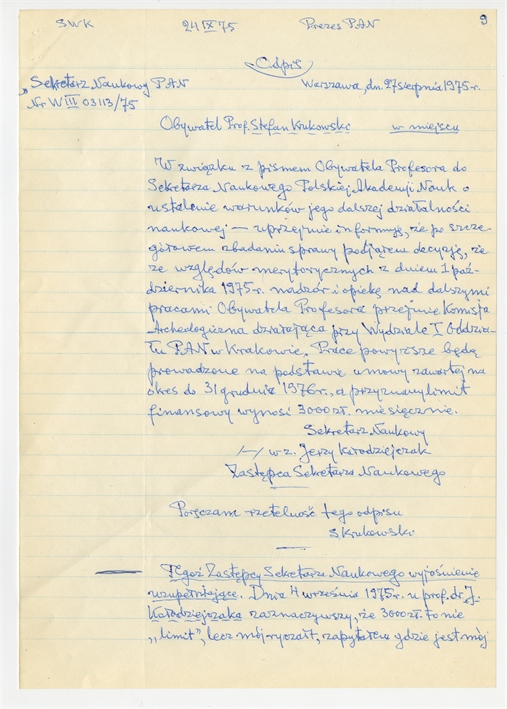 SWK 24 IX 75 Prezes PAN 9
Odpis
„Sekretarz Naukowy PAN Warszawa, dn. 27 sierpnia 1975 r.
Nr W III 03113/75
Obywatel Prof. Stefan Krukowski w miejscu
W związku z pismem Obywatela Profesora do
Sekretarza Naukowego Polskiej Akademji Nauk o
ustalenie warunków jego dalszej działalności
naukowej — uprzejmie informuję, że po szcze-
gółowem zbadaniu sprawy podjąłem decyzję, że
ze względów merytorycznych z dniem 1 paź-
dziernika 1975 r. nadzór i opiekę nad dalszymi
pracami Obywatela Profesora przejmie Komisja
Archeologiczna działająca przy Wydziale I Oddzia-
łu PAN w Krakowie. Prace powyższe będą
prowadzone na podstawie umowy zawartej na
okres do 31 grudnia 1976 r., a przyznany limit
finansowy wynosi 3000 zł. miesięcznie.
Sekretarz Naukowy
/—/ w z. Jerzy Kołodziejczak
Zastępca Sekretarza Naukowego
Poręczam rzetelność tego odpisu
S Krukowski
Tegoż Zastępcy Sekretarza Naukowego wyjaśnienie
uzupełniające. Dnia 4 września 1975 r. u prof. dr. J.
Kołodziejczaka zaznaczywszy, że 3000 zł. to nie
„limit”, lecz mój ryczałt, zapytałem gdzie jest mój